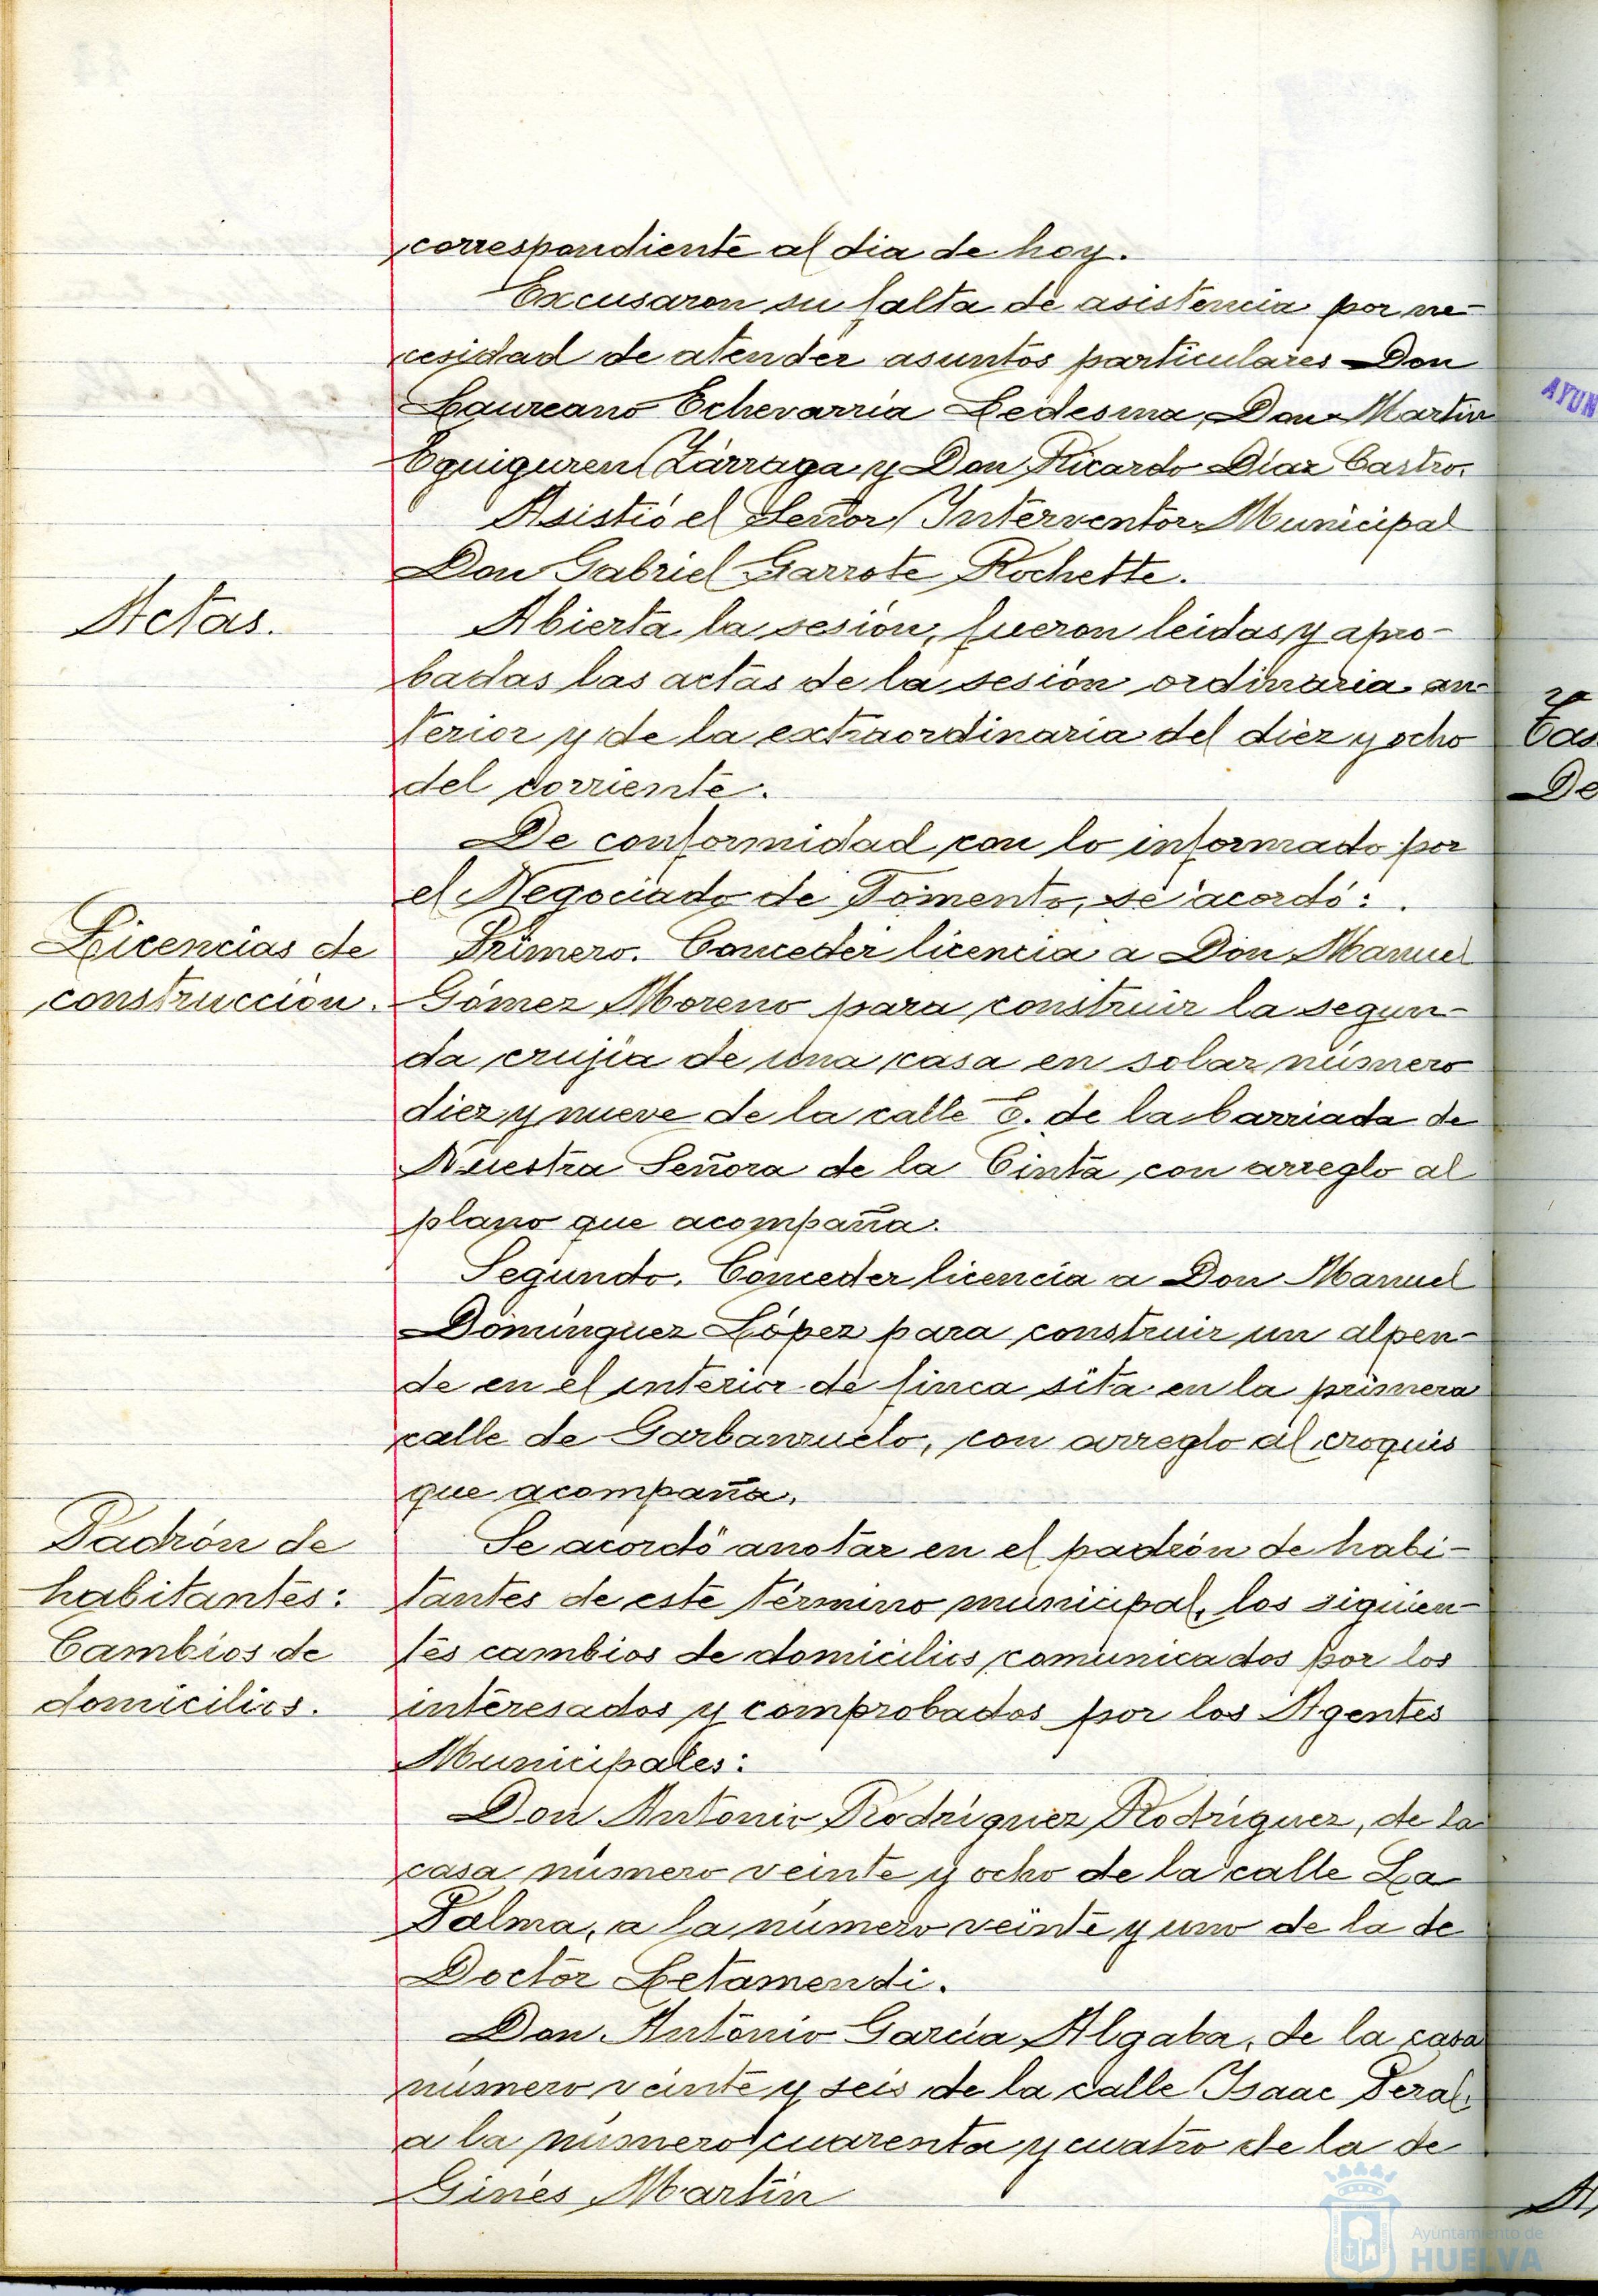 correspondiente al dia de hoy.
Excusaron su falta de asistencia por ne-
cesidad de atender asuntos particulares Don
Laureano Echevarría Ledesma, Don Martin
Eguiguren Zárraga y Don Ricardo Díaz Castro.
Asistió el Señor Interventor Municipal
Don Gabriel Garrote Rochette.
Actas.
Abierta la sesión, fueron leidas y apro-
badas las actas de la sesión ordinaria an-
terior y de la extraordinaria del diez y ocho
del corriente.
De conformidad con lo informado por
el Negociado de Fomento, se acordó:
Licencias de
construcción.
Primero. Conceder licencia a Don Manuel
Gómez Moreno para construir la segun-
da crujía de una casa en solar número
diez y nueve de la calle E. de la barriada de
Nuestra Señora de la Cinta, con arreglo al
plano que acompaña.
Segundo. Conceder licencia a Don Manuel
Domínguez López para construir un alpen-
de en el interior de finca sita en la primera
calle de Garbanzuelo, con arreglo al croquis
que acompaña.
Padrón de
habitantes:
Cambios de
domicilios.
Se acordó anotar en el padrón de habi-
tantes de este término municipal, los siguien-
tes cambios de domicilios comunicados por los
interesados y comprobados por los Agentes
Municipales:
Don Antonio Rodríguez Rodríguez, de la
casa número veinte y ocho de la calle La
Palma, a la número veinte y uno de la de
Doctor Letamendi.
Don Antonio García Algaba, de la casa
número veinte y seis de la calle Isaac Peral,
a la número cuarenta y cuatro de la de
Ginés Martín
AYUN
Cas
De
Ayuntamiento de
HUELVA